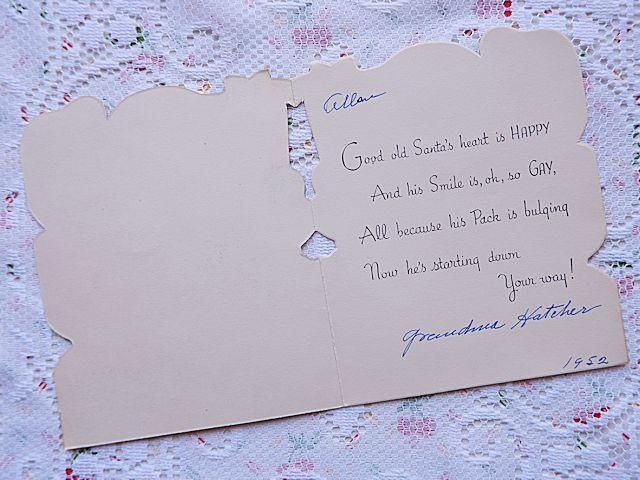 Allan
Good old Santa's heart is HAPPY
And his Smile is, oh, so GAY,
All because his Pack is bulging
Now he's starting down
Your way!
Grandma Hatcher
1952